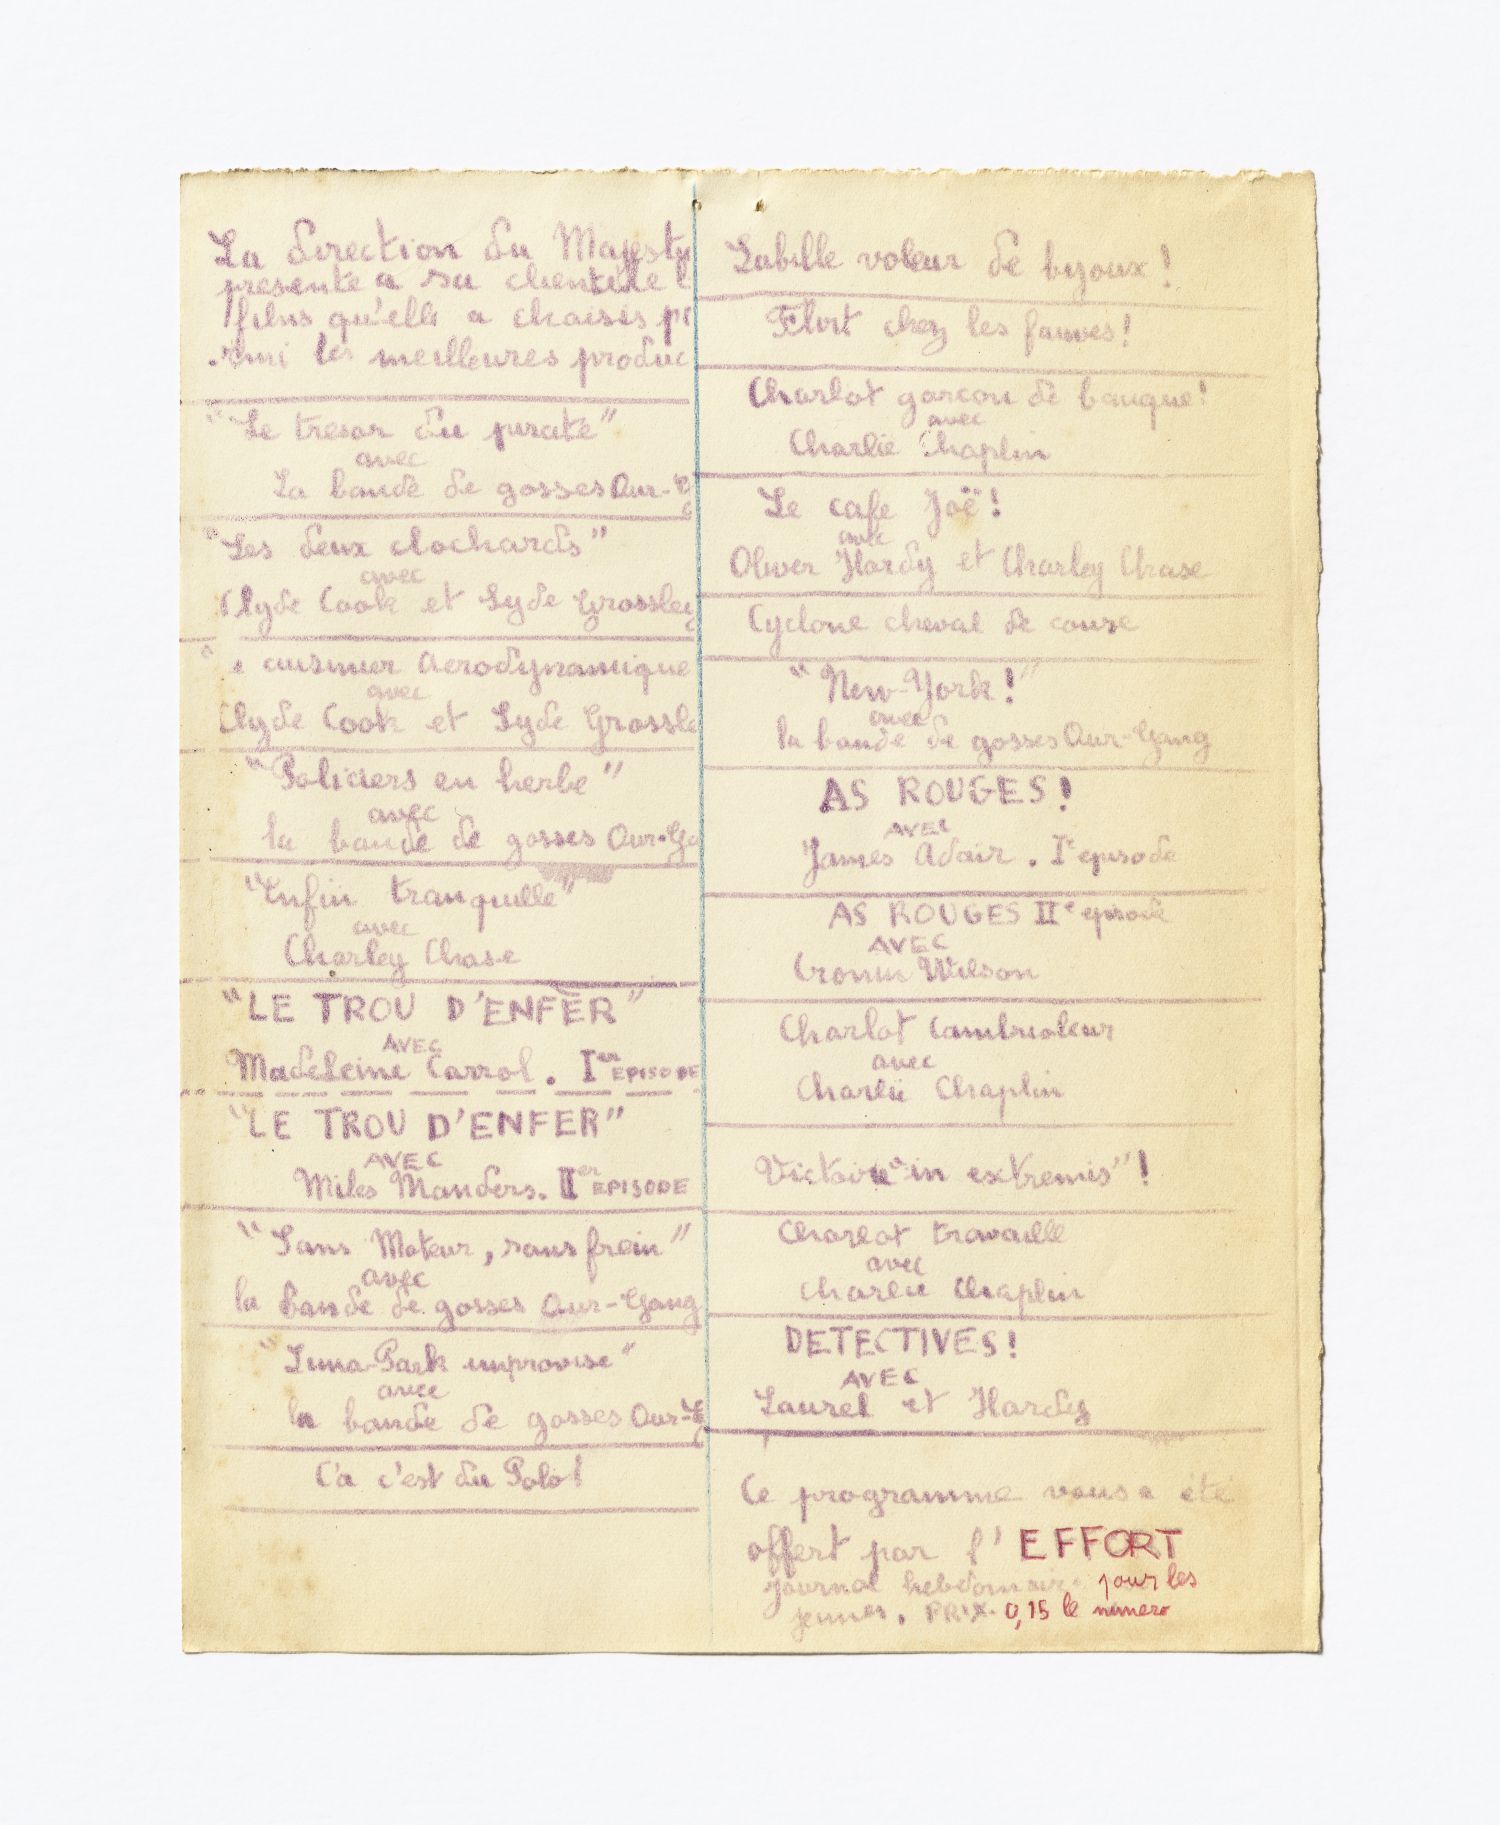 La direction du Majesty
presente a sa clientèle l
films qu'elle a choisis pa
rmi les meilleures produc
"Le tresor du pirate"
avec
La bande de gosses Our-G
"Les deux clochards"
avec
Clyde Cook et Lyde Grossley
cuisinier aerodynamique
avec
Clyde Cook et Lyde Grossle
"Policiers en herbe"
avec
la bande de gosses Our-Ga
"Enfin tranquille"
avec
Charley Chase
"LE TROU D'ENFER"
AVEC
Madeleine Carrol. Ier EPISODE
"LE TROU D'ENFER"
AVEC
Miles Manders. IIer EPISODE
"Sans Moteur, sans frein"
avec
la bande de gosses Our-Gang
"Luna-Park improvise"
avec
la bande de gosses Our-G
Ca c'est du Polo!
Labille voleur de bijoux!
Flirt chez les fauves!
Charlot garcon de banque!
avec
Charlie Chaplin
Le cafe Joë!
avec
Oliver Hardy et Charley Chase
Cyclone cheval de course
"New-York!"
avec
la bande de gosses Our-Gang
AS ROUGES!
AVEC
James Adair. Ir episode
AS ROUGES IIe episode
AVEC
Cronin Wilson
Charlot Cambrioleur
avec
Charlie Chaplin
Victoire "in extremis"!
Charlot travaille
avec
Charlie Chaplin
DETECTIVES!
AVEC
Laurel et Hardy
Ce programme vous a été
offert par l'EFFORT
journal hebdomaire pour les
jeunes. PRIX. 0,15 le numero